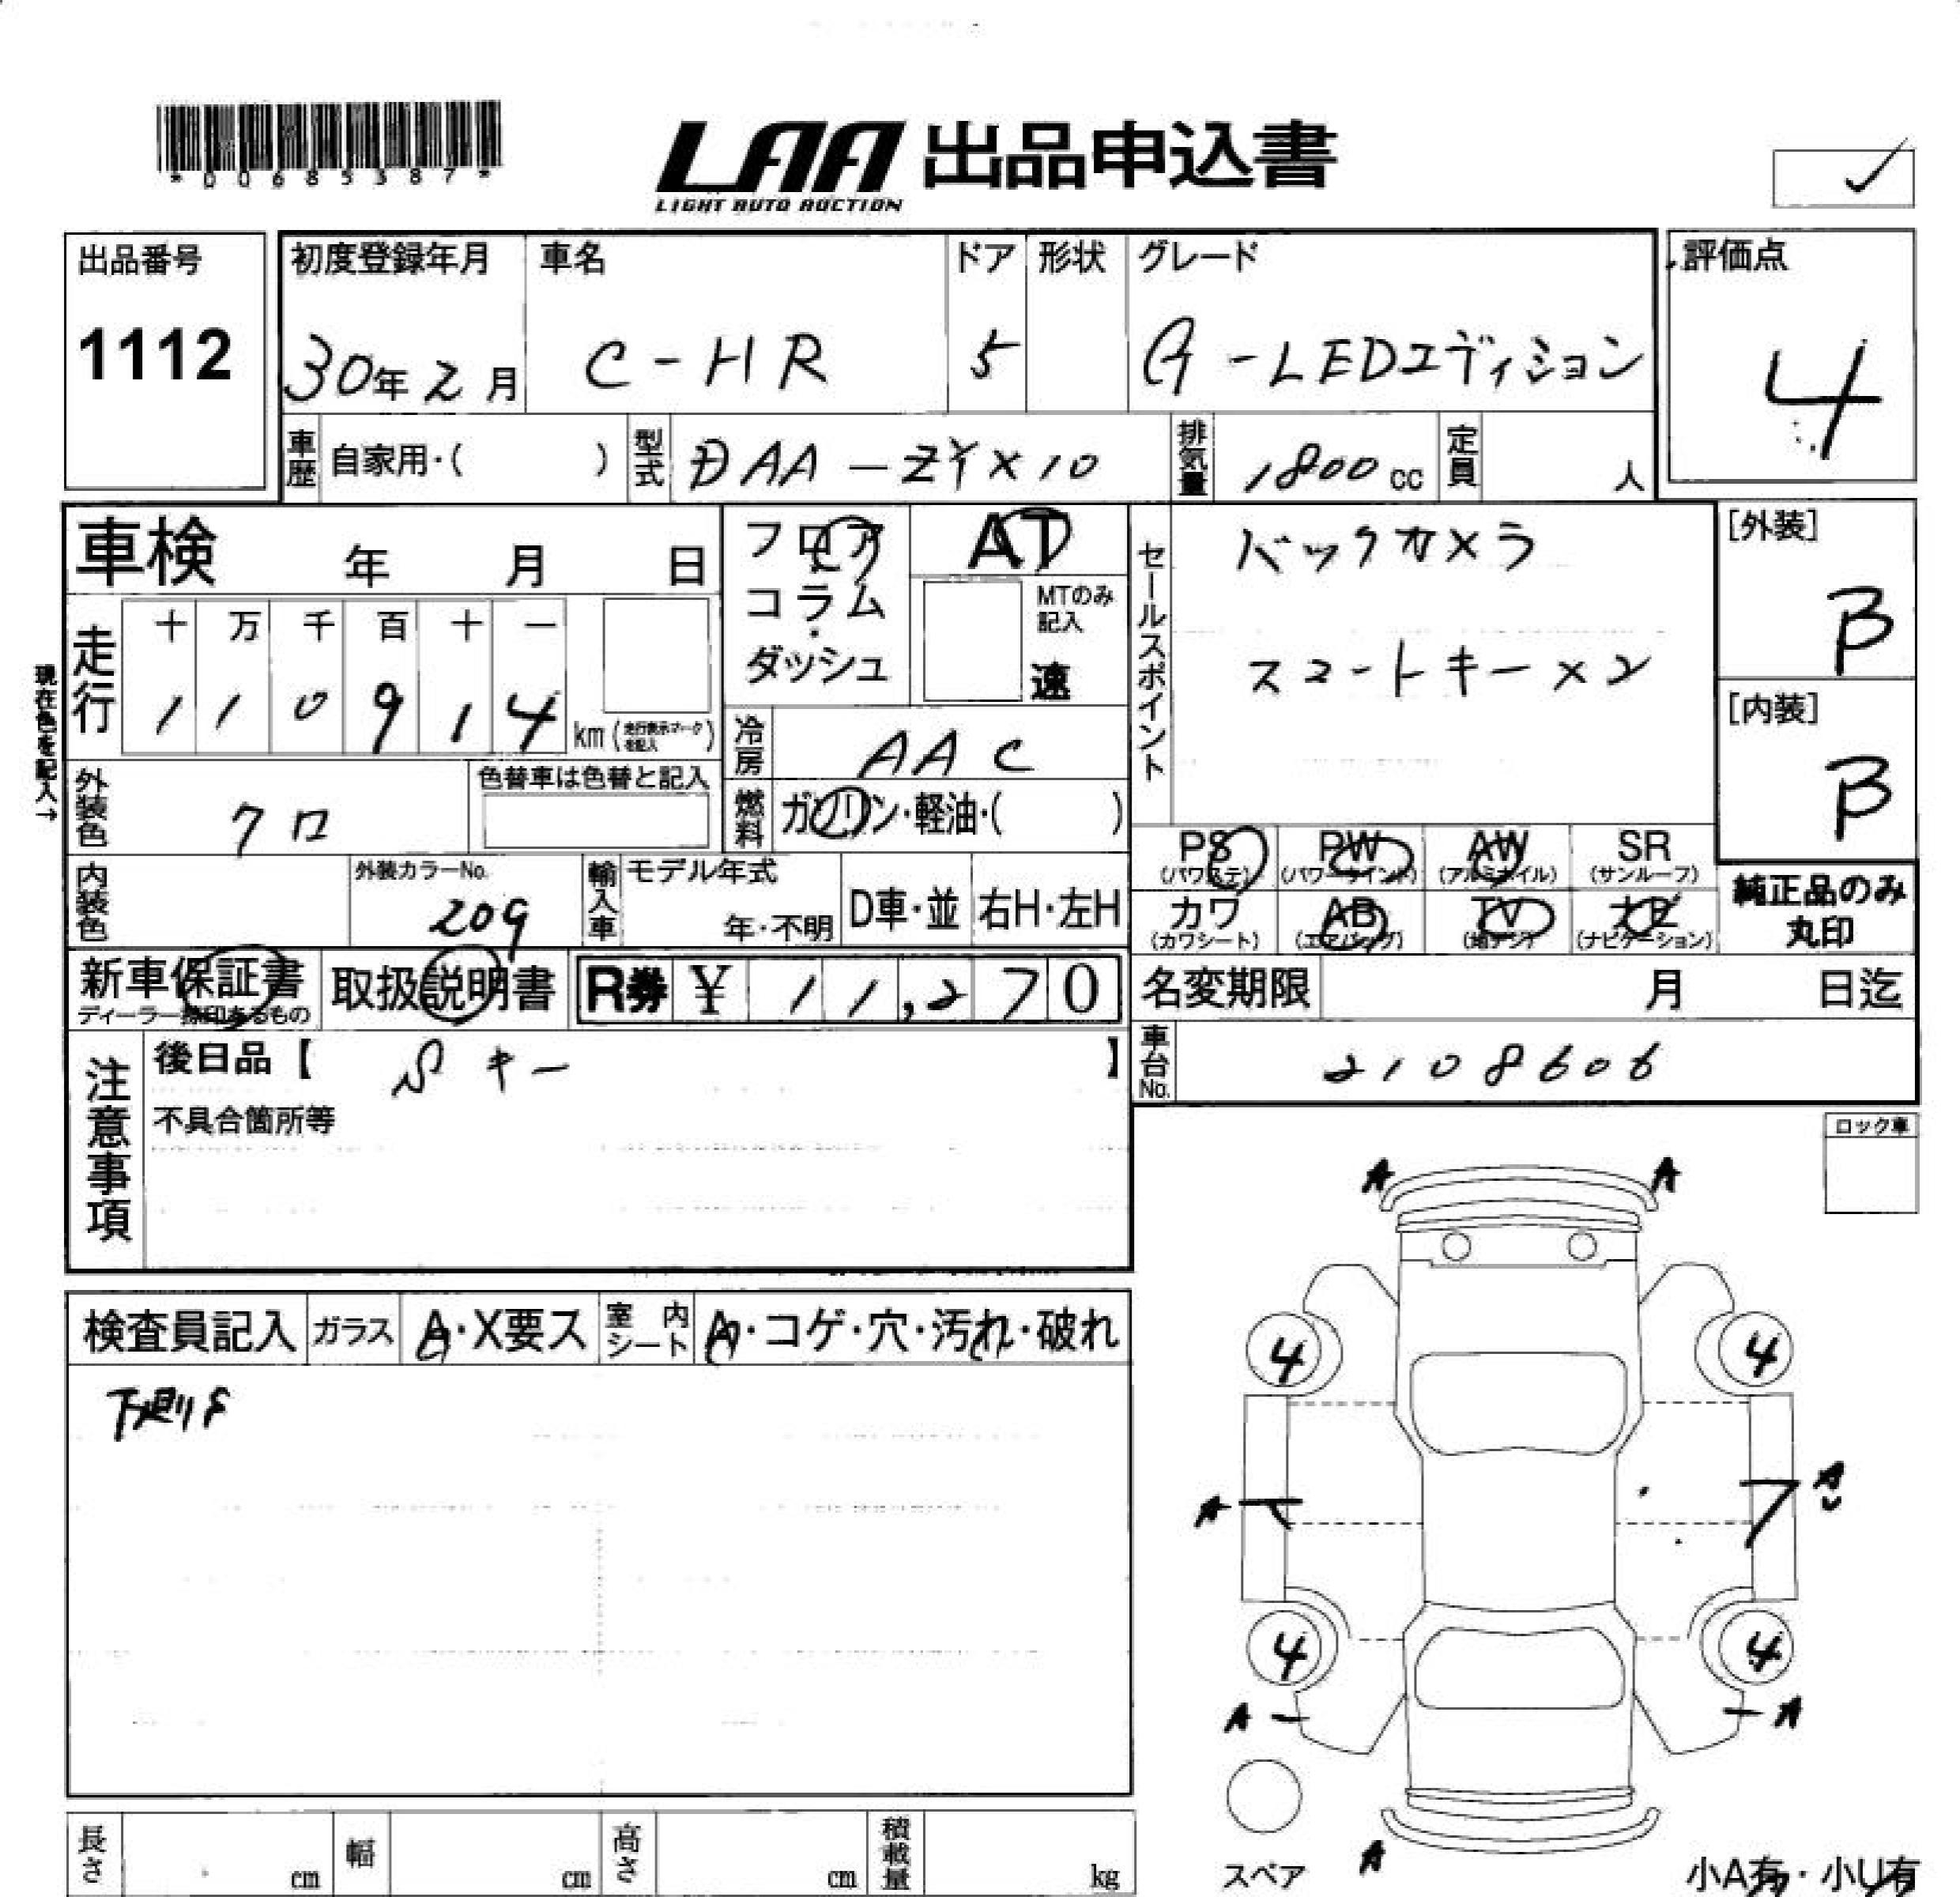 *00685387*
LAA 出品申込書
LIGHT AUTO AUCTION
出品番号
1112
初度登録年月
30年2月
車名
C-HR
ドア
5
形状
グレード
G-LEDエディション
評価点
4
車歴 自家用・( )
型式 DAA-ZYX10
排気量 1800cc
定員 人
車検 年 月 日
フロア・コラム・ダッシュ
AT
MTのみ記入
速
セールスポイント
バックカメラ
スマートキー×2
[外装]
B
[内装]
B
現在色を記入→
走行
十 万 千 百 十 一
1 1 0 9 1 4 km (走行表示マークを記入)
冷房 AAC
外装色 クロ
色替車は色替と記入
燃料 ガソリン・軽油・( )
内装色
外装カラーNo.
209
輸入車 モデル年式
年・不明
D車・並
右H・左H
PS (パワステ)
PW (パワーウインド)
AW (アルミホイル)
SR (サンルーフ)
カワ (カワシート)
AB (エアバッグ)
TV (地デジ)
ナビ (ナビゲーション)
純正品のみ
丸印
新車保証書
ディーラー捺印あるもの
取扱説明書
R券 ¥ 11,270
名変期限 月 日迄
車台No. 2108606
注意事項
後日品【 Sキー 】
不具合箇所等
ロック車
検査員記入
ガラス A・X要ス
室内シート A・コゲ・穴・汚れ・破れ
A A
4 4
A A
4 4
A A
A
スペア
小A有・小U有
長さ cm
幅 cm
高さ cm
積載量 kg